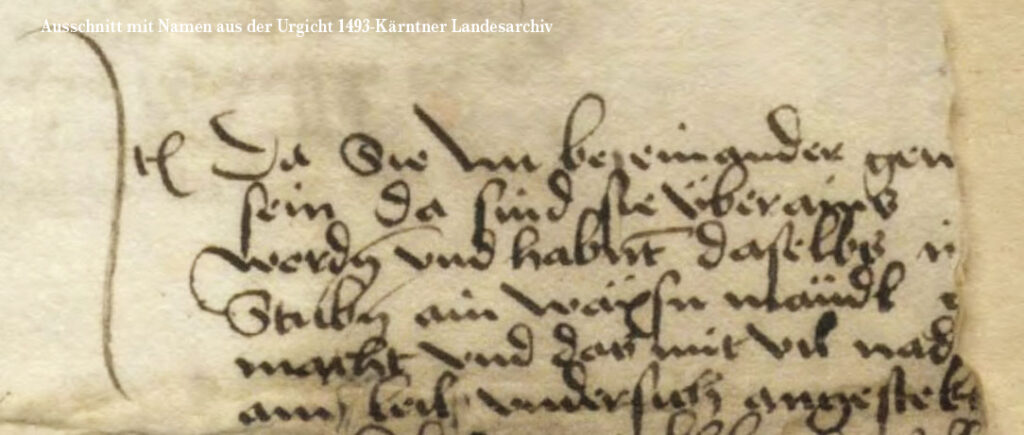 Ausschnitt mit Namen aus der Urgicht 1493-Kärntner Landesarchiv
Da Sie bey einander gen
sein da sind sie überains
werdn vnd habnt daselbs
Stubn ain wäxsn mändl
macht vnd das mit vil nad
ain teil vndersich angestekt